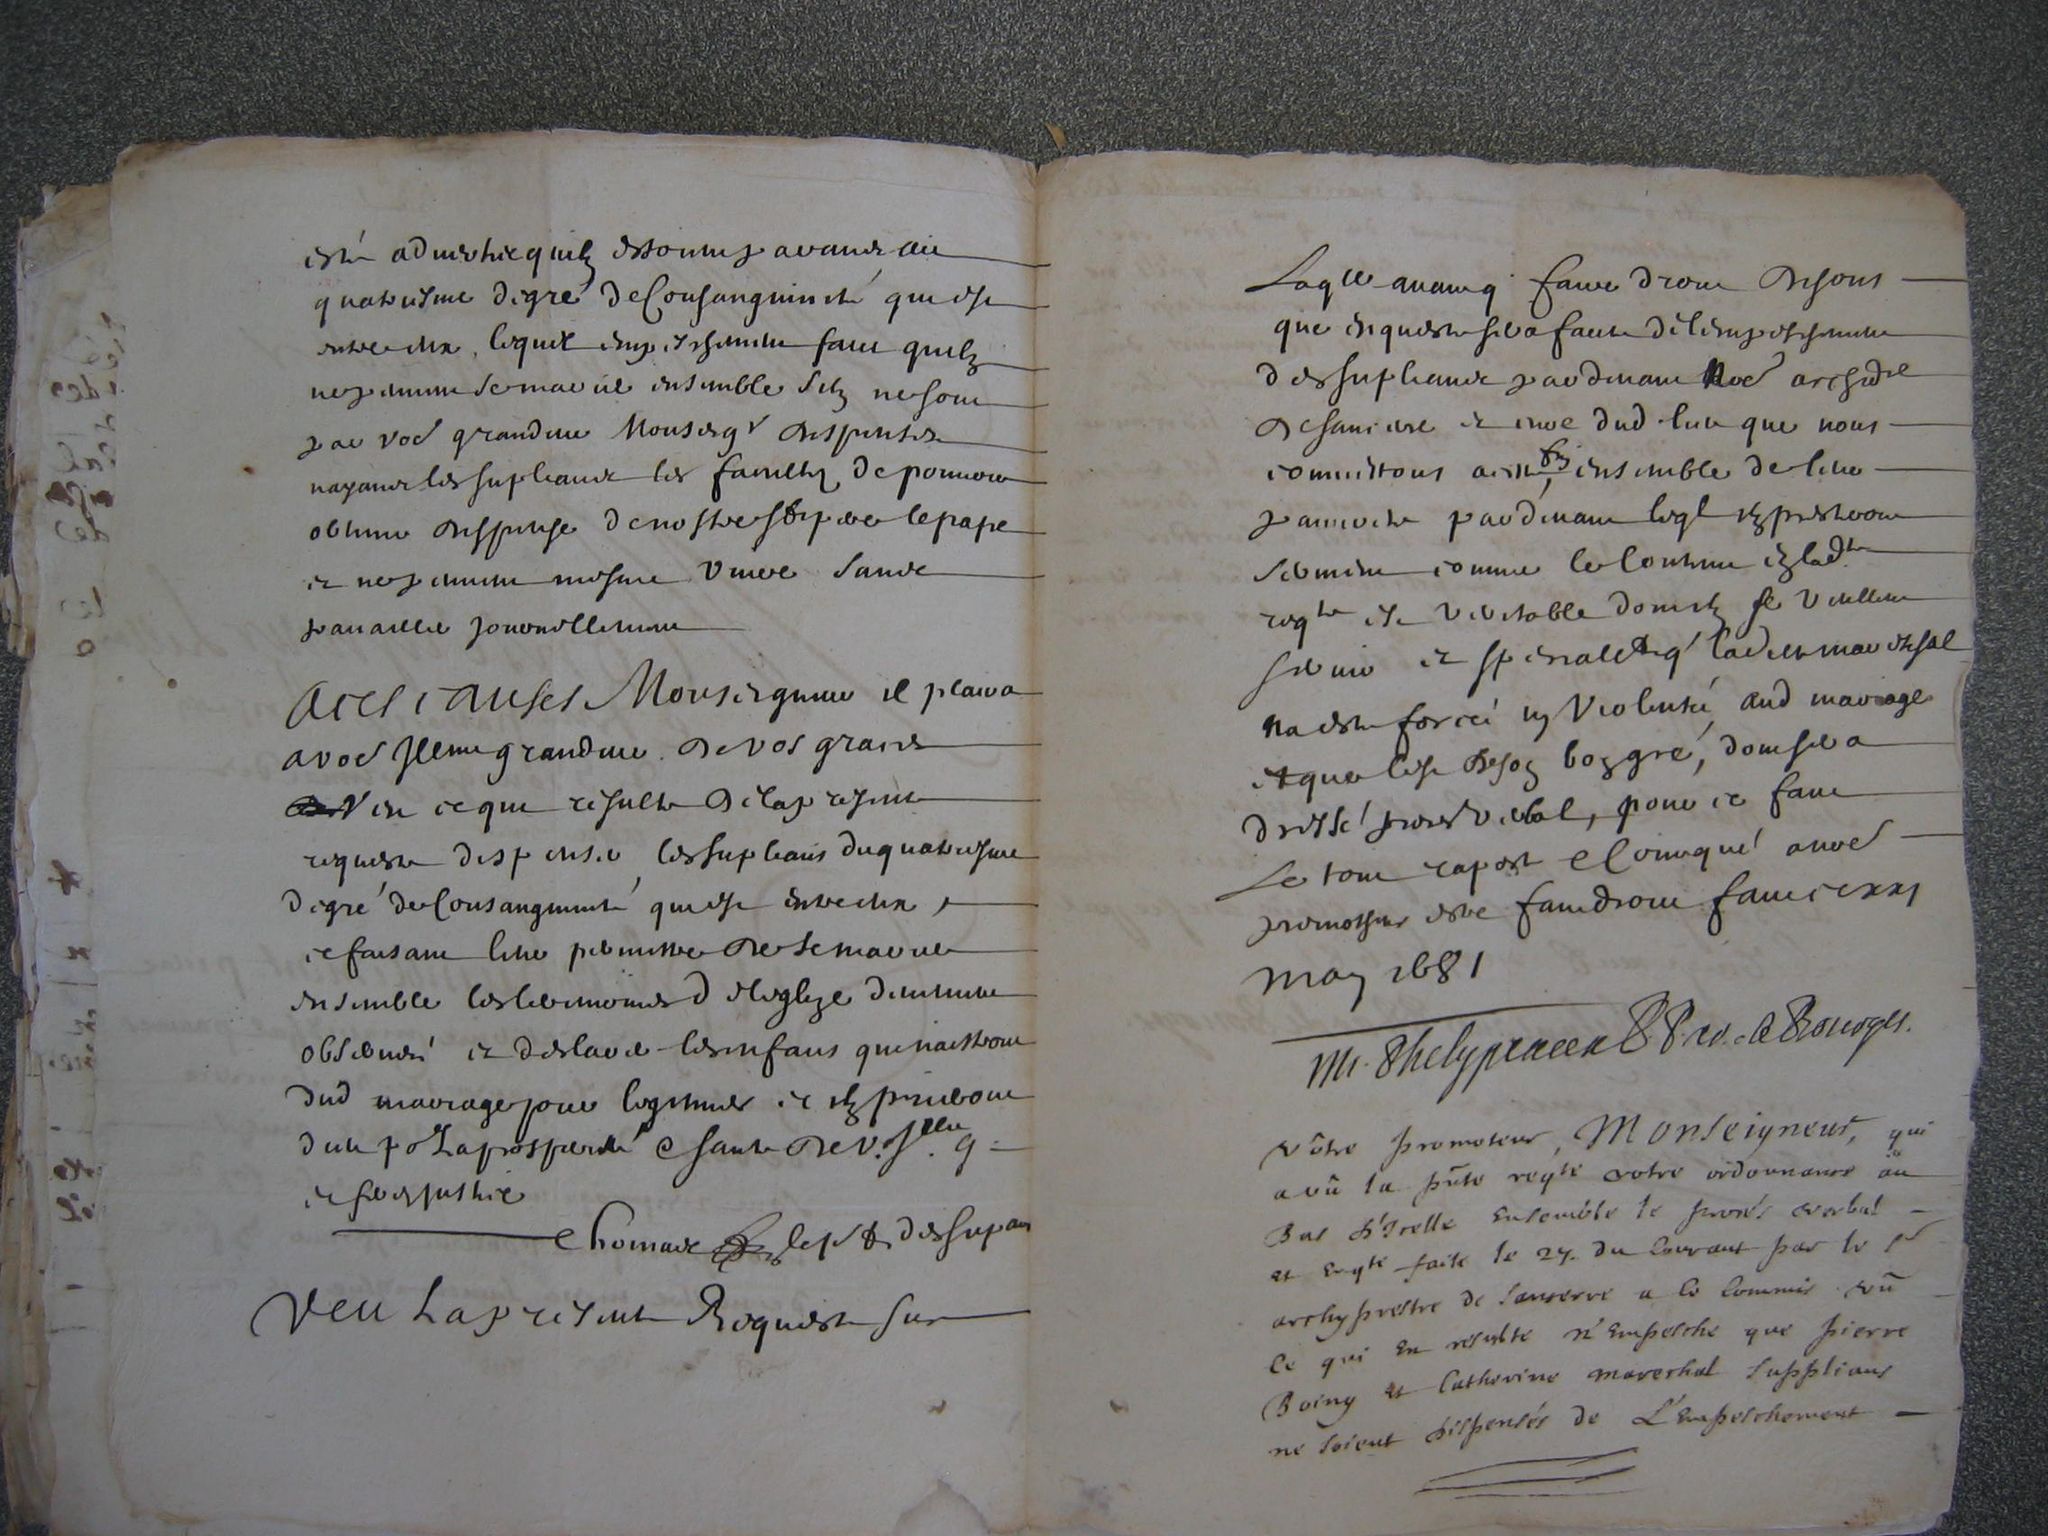 esté advertie quilz estoints parans au
quatriesme degré de Consanguinité qui est
entre eux, lequel empeschemens faict quilz
ne peuvent se marier ensemble silz ne sont
par vre grandeur Monseigr dispenses
nayans les supliants les facultez de pouvoir
obtenir dispense de nostre St pere le pape
et ne peuvent mesme vivre sans
travailler journellement
A ces causes Monseigneur il plaira
a vre Illme grandeur de vos graces
veu ce que resulte de la presente
requeste dispenser les supliants du quatriesme
degré de Consanguinité qui est entre eux,
ce faisant leur permettre de se marier
ensemble les ceremonies de leglize deuement
observé et declarer les enfans qui naistront
dud mariage pour legitimes et ilz priront
dieu pr la prosperité e santé de v. Illme g
et ferez justice
Thomas des supans
Veu La presente Requeste sur
Laqlle avant q faire droit disons
que enqueste sera faicte de lempeschement
des supliants pardevant Nre archipbre
de Sancerre et curé dud lieu que nous
commettons a cette fin, ensemble de leur
pauvreté pardevant leql ilz presteront
serment comme le contenu en lade
reqte est veritable dont ilz se veullent
servir et specialemt q ladicte mareschal
na esté forcée ny violentée aud mariage
et que cest de son bon gré, dont sera
dressé proces verbal, pour ce faict
Le tout raporté e Comuniqué a nre
promotheur estre faict droit faict ce xxi
may 1681
M. Phelypeaux P. P. ar. de Bourges.
Vôtre promoteur, Monseigneur, qui
a vû la pnte reqte votre ordonnance au
Bas d'Icelle Ensemble le procés verbal
et Enqte faite le 27. du Courant par le Sr
archyprestre de Sancerre a ce Commis vû
Ce qui En resulte n'Empesche que pierre
Boiny et Catherine mareschal supplians
ne soient dispensés de L'Empeschement